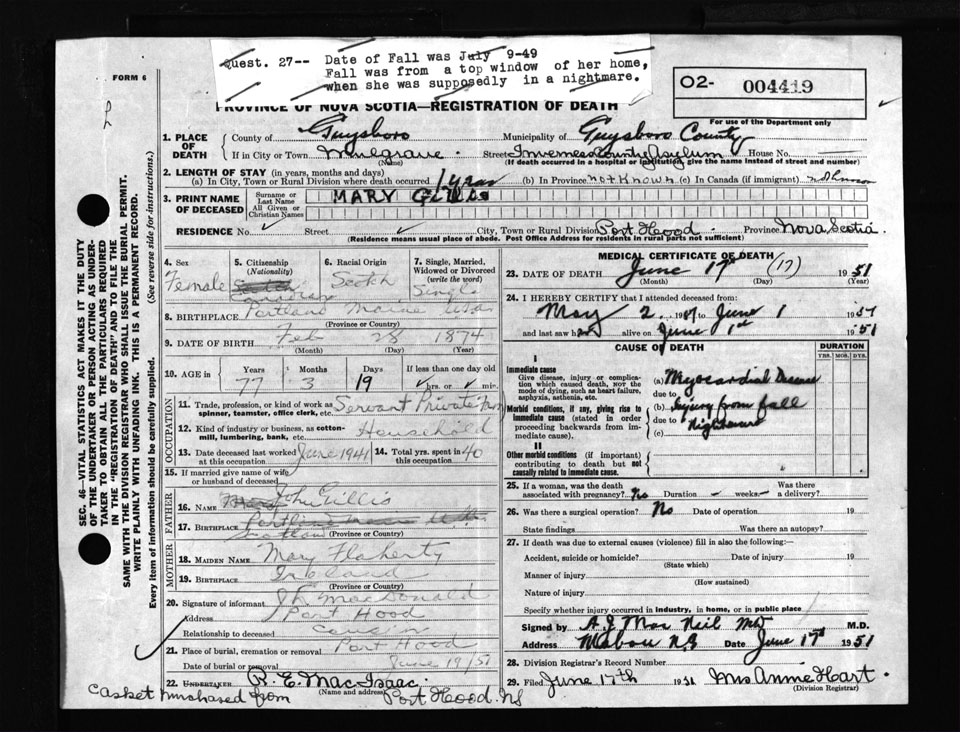 Quest. 27-- Date of Fall was July 9-49
Fall was from a top window of her home,
when she was supposedly in a nightmare.
FORM 6
O2- 004419
For use of the Department only
PROVINCE OF NOVA SCOTIA—REGISTRATION OF DEATH
SEC. 46—VITAL STATISTICS ACT MAKES IT THE DUTY
OF THE UNDERTAKER OR PERSON ACTING AS UNDER-
TAKER TO OBTAIN ALL THE PARTICULARS REQUIRED
IN THE "REGISTRATION OF DEATH" AND TO FILE THE
SAME WITH THE DIVISION REGISTRAR WHO SHALL ISSUE THE BURIAL PERMIT.
WRITE PLAINLY WITH UNFADING INK. THIS IS A PERMANENT RECORD.
Every item of information should be carefully supplied. (See reverse side for instructions.)
1. PLACE OF DEATH County of Guysboro Municipality of Guysboro County
If in City or Town Mulgrave Street Inverness County Asylum House No.
(Name) (If death occurred in a hospital or institution, give the name instead of street and number)
2. LENGTH OF STAY (in years, months and days)
(a) In City, Town or Rural Division where death occurred 1 year (b) In Province not known (c) In Canada (if immigrant)
3. PRINT NAME OF DECEASED Surname or Last Name MARY Gillis
All Given or Christian Names
RESIDENCE No. Street City, Town or Rural Division Port Hood Province Nova Scotia
(Residence means usual place of abode. Post Office Address for residents in rural parts not sufficient)
4. Sex 5. Citizenship (Nationality) 6. Racial Origin 7. Single, Married, Widowed or Divorced (write the word)
Female Scotch Canadian Scotch Single
8. BIRTHPLACE Portland Maine USA
(Province or Country)
9. DATE OF BIRTH Feb 28 1874
(Month) (Day) (Year)
10. AGE in Years Months Days If less than one day old
77 3 19 hrs. or min.
OCCUPATION
11. Trade, profession, or kind of work as spinner, teamster, office clerk, etc. Servant Private Fam
12. Kind of industry or business, as cotton-mill, lumbering, bank, etc. Household
13. Date deceased last worked at this occupation June 1941 14. Total yrs. spent in this occupation 40
15. If married give name of wife or husband of deceased
FATHER
16. Name John Gillis
17. Birthplace Scotland
(Province or Country)
MOTHER
18. MAIDEN NAME Mary Flaherty
19. BIRTHPLACE Ireland
(Province or Country)
20. Signature of informant MacDonald
Address Port Hood
Relationship to deceased Cousin
21. Place of burial, cremation or removal Port Hood
Date of burial or removal June 19/51
22. UNDERTAKER B. E. MacIsaac
(Name and address)
Casket purchased from Port Hood NS
MEDICAL CERTIFICATE OF DEATH
23. DATE OF DEATH June 17th (17) 1951
(Month) (Day) (Year)
24. I HEREBY CERTIFY that I attended deceased from:
May 2 to June 1 1951
and last saw her alive on June 1st 1951
CAUSE OF DEATH DURATION
YRS. MOS. DYS.
I
Immediate cause
Give disease, injury or complication which caused death, not the mode of dying, such as heart failure, asphyxia, asthenia, etc.
(a) Myocardial Disease
due to
Morbid conditions, if any, giving rise to immediate cause (stated in order proceeding backwards from immediate cause).
(b) Injury from fall
due to Nightmare
(c)
II
Other morbid conditions (if important) contributing to death but not causally related to immediate cause.
25. If a woman, was the death associated with pregnancy? No Duration — weeks— Was there a delivery?
26. Was there a surgical operation? No Date of operation 19
State findings Was there an autopsy?
27. If death was due to external causes (violence) fill in also the following:—
Accident, suicide or homicide? Date of injury 19
(State which)
Manner of injury
(How sustained)
Nature of injury
Specify whether injury occurred in industry, in home, or in public place
Signed by A J MacNeil MD M.D.
Address Mabou N.S Date June 17th 1951
28. Division Registrar's Record Number
29. Filed June 17th 1951 Mrs Annie Hart
(Division Registrar)